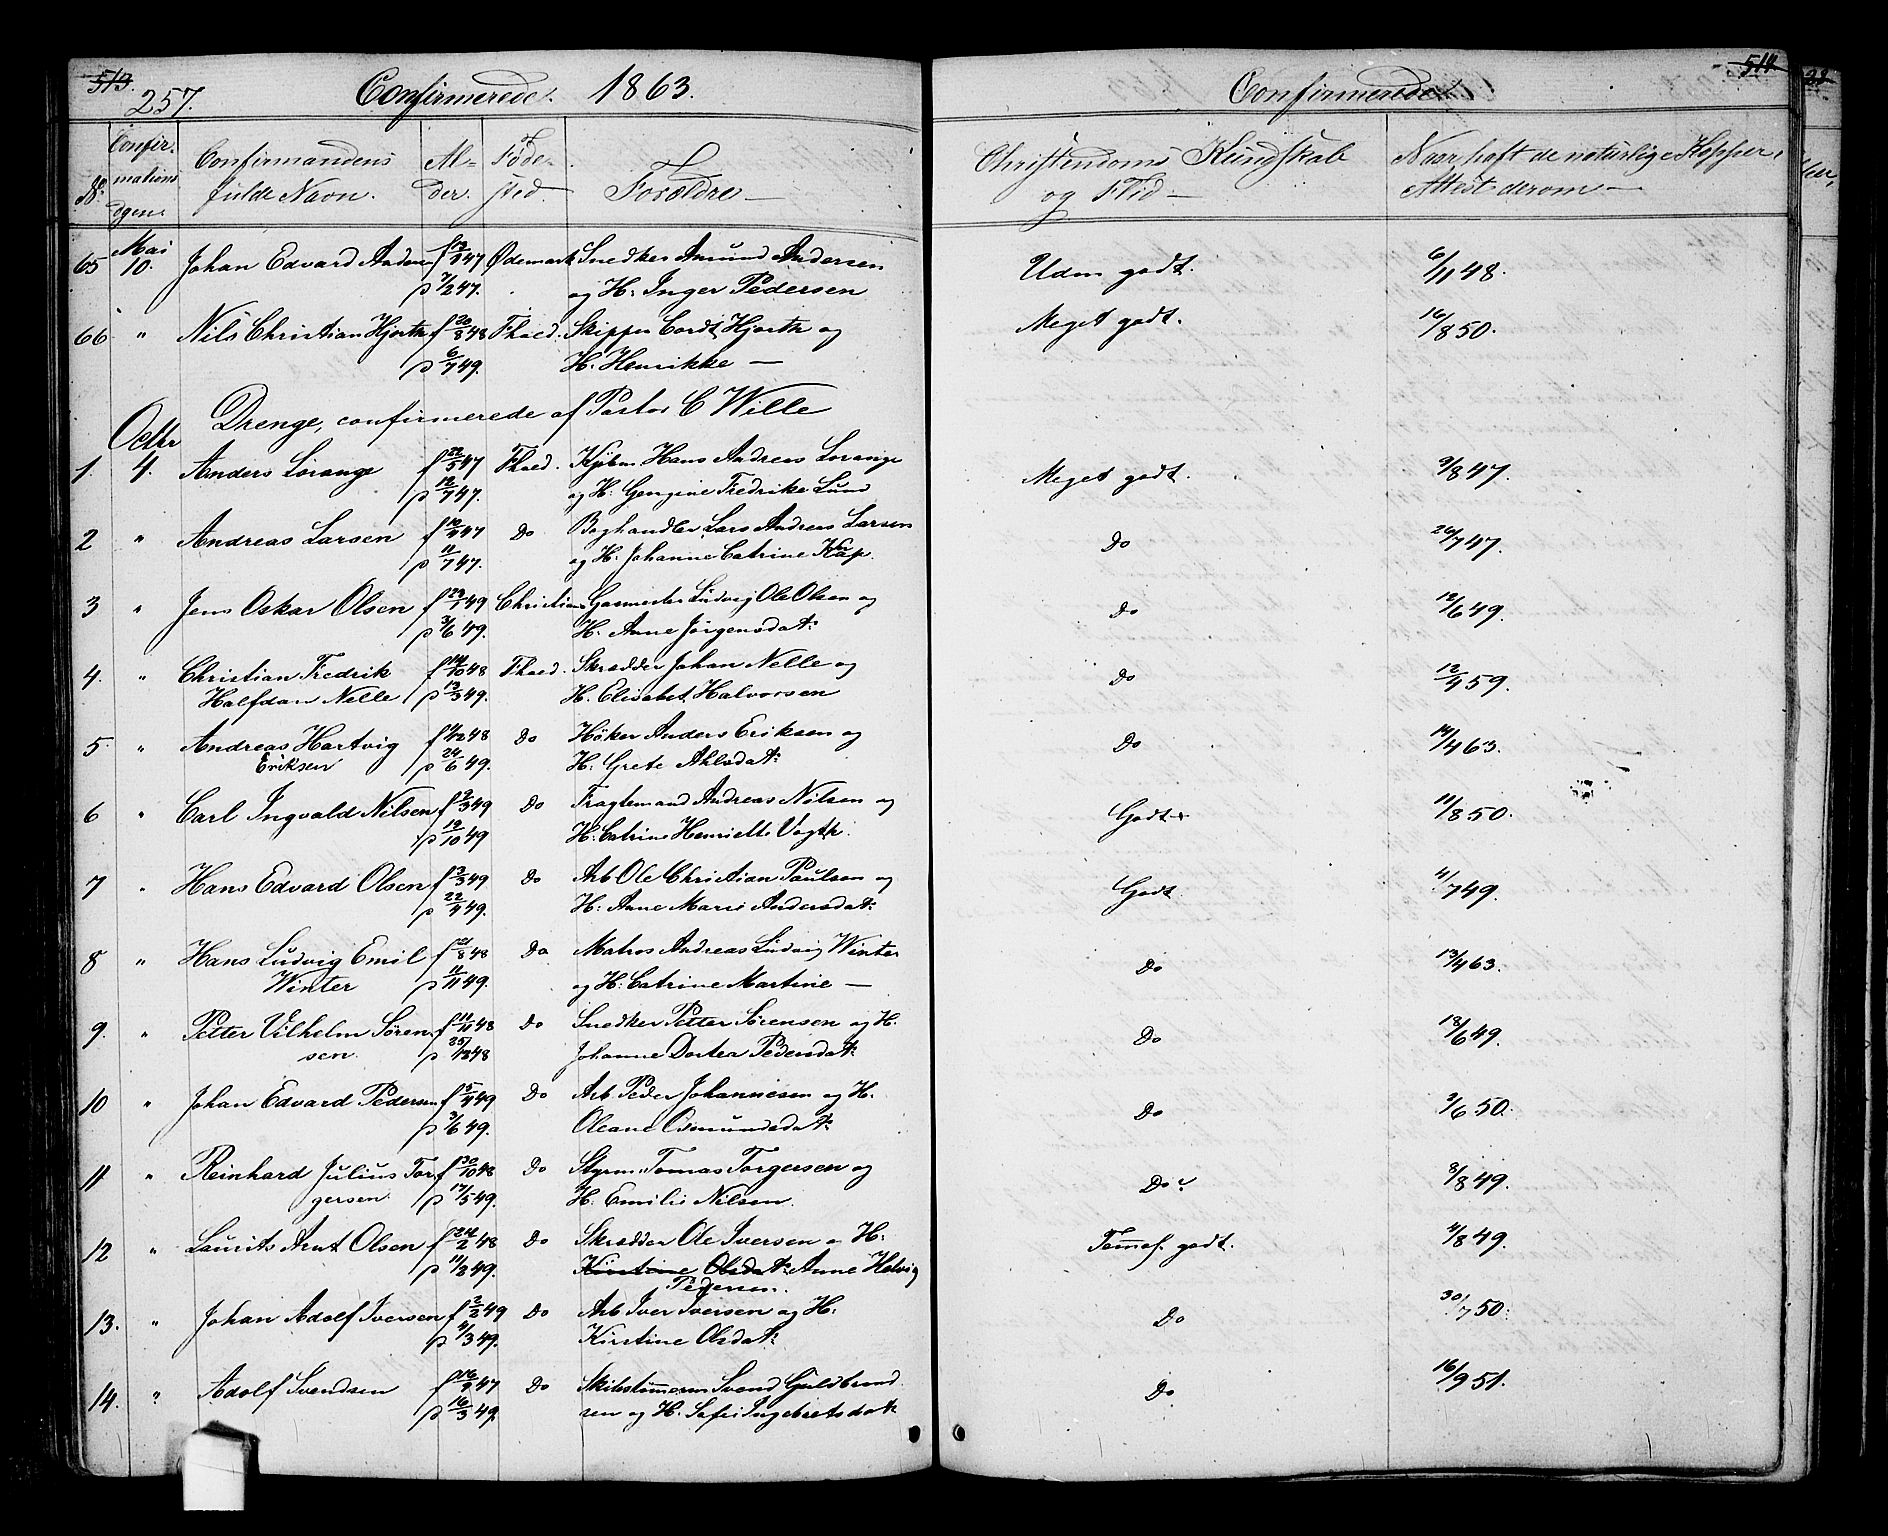 513.
257.
Confirmerede. 1863.
No. Confir-mations dgen. Confirmandens fulde Navn. Al-der. Føde-sted. Forældre
65 Mai 10. Johan Edvard Anders f 47 Ødemark Snedker Amund Andersen
p 7/2 47. og H: Inger Pedersen
66 " Nils Christian Hjorth f 20/8 48 Fhald. Skipper Cordt Hjorth og
p 6/7 49. H: Henrikke
Drenge, confirmerede af Pastor C Wille
Octbr
1. 4. Anders Lorange f 22/5 47 Fhald. Kjøbm Hans Andreas Lorange
p 12/7 47. og H: Gengine Fredrike Lund
2 " Andreas Larsen f 47 Do Boghandler Lars Andreas Larsen
p 11/7 47. og H: Johanne Catrine Kap.
3 " Jens Oskar Olsen f 23/1 49 Christian Gasmester Ludvig Ole Olsen og
p 3/6 49. H: Anne Jørgensdat:
4. " Christian Fredrik f 14/10 48 Fhald. Skrædder Johan Nelle og
Halfdan Nelle p 13/3 49. H: Elisabet Halvorsen
5. " Andreas Hartvig f 48 Do Høker Anders Eriksen og
Eriksen p 24/6 49. H: Grete Ahlsdat:
6 " Carl Ingvald Nilsen f 2/3 49 Do Fragtemand Andreas Nilsen og
p 19/10 49 H: Catrine Henriette Vogth.
7 " Hans Edvard Olsen f 3/3 49 Do Arb Ole Christian Paulsen og
p 22/4 49. H: Anne Marie Andersdat:
8 " Hans Ludvig Emil f 21/8 48 Do Matros Andreas Ludvig Winter
Winter p 11/11 49. og H: Catrine Martine
9. " Petter Vilhelm Søren f 11/11 48 Do Snedker Petter Sørensen og H.
sen. p 25/12 48 Johanne Dortea Pedersdat:
10 " Johan Edvard Pedersen f 5/4 49 Do Arb Peder Johannesen og H.
p 3/6 49. Oleane Osmundsdat:
11 " Reinhard Julius Tor f 30/10 48 Do Styrm: Tomas Torgersen og
gersen. p 17/5 49. H: Emilie Nilsen.
12 " Laurits Arnt Olsen f 24/2 48 Do Skrædder Ole Iversen o H:
p 11/2 49. Kirstine Olsdat: Anne Helvig
Pedersen.
13. " Johan Adolf Iversen f 2/2 49 Do Arb Iver Iversen og H:
p 4/3 49. Kirstine Olsdat:
14. " Adolf Svendsen f 47 Do Skibstømmerm Svend Guldbrand
p 16/3 49. sen og H. Safi Ingebretsdat:
514
Confirmerede.
Christendoms Kundskab og Flid Naar haft de naturlige Kopper, Attest derom
Udm godt. 6/11 48.
Meget godt. 16/8 50.
Meget godt. 9/8 47.
Do 26/7 47.
Do 12/6 49.
Do 12/4 59.
Do 14/4 63.
Godt+ 11/8 50.
Godt. 4/7 49.
Do 13/4 63.
Do 18/6 49.
Do 3/6 50.
Do 8/8 49.
Temmel. godt. 4/8 49.
Do 30/7 50.
Do 16/9 51.